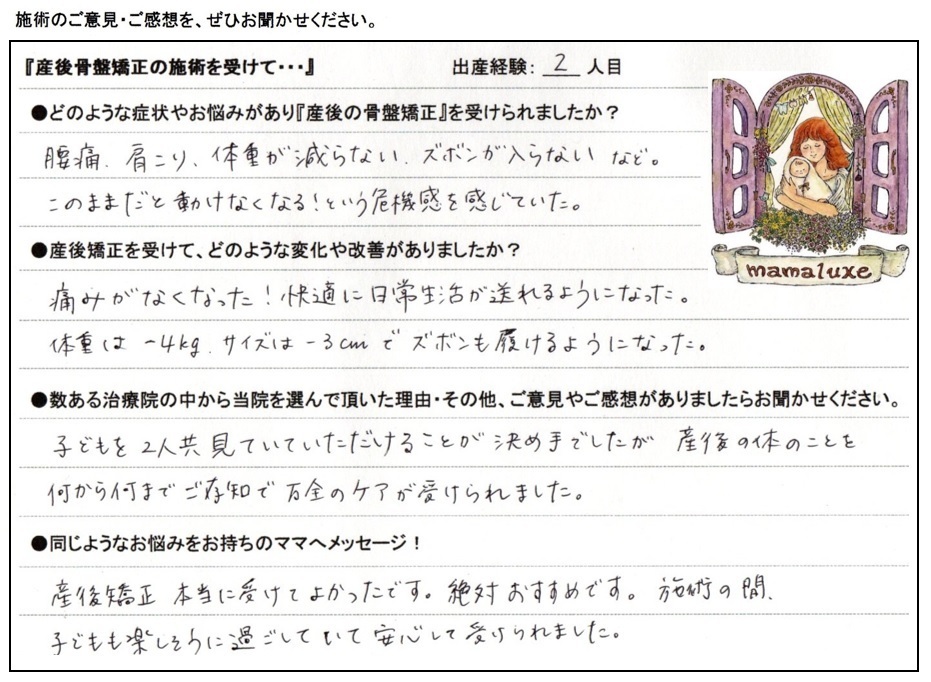 施術のご意見・ご感想を、ぜひお聞かせください。
『産後骨盤矯正の施術を受けて・・・』 出産経験: 2 人目
●どのような症状やお悩みがあり『産後の骨盤矯正』を受けられましたか？
腰痛、肩こり、体重が減らない、ズボンが入らない など。
このままだと動けなくなる！という危機感を感じていた。
mamaluxe
●産後矯正を受けて、どのような変化や改善がありましたか？
痛みがなくなった！快適に日常生活が送れるようになった。
体重は -4kg、サイズは -3cmで ズボンも履けるようになった。
●数ある治療院の中から当院を選んで頂いた理由・その他、ご意見やご感想がありましたらお聞かせください。
子どもを2人共見ていていただけることが 決め手でしたが 産後の体のことを
何から何までご存知で 万全のケアが受けられました。
●同じようなお悩みをお持ちのママへメッセージ！
産後矯正 本当に受けてよかったです。絶対おすすめです。 施術の間、
子どもも楽しそうに過ごしていて 安心して受けられました。